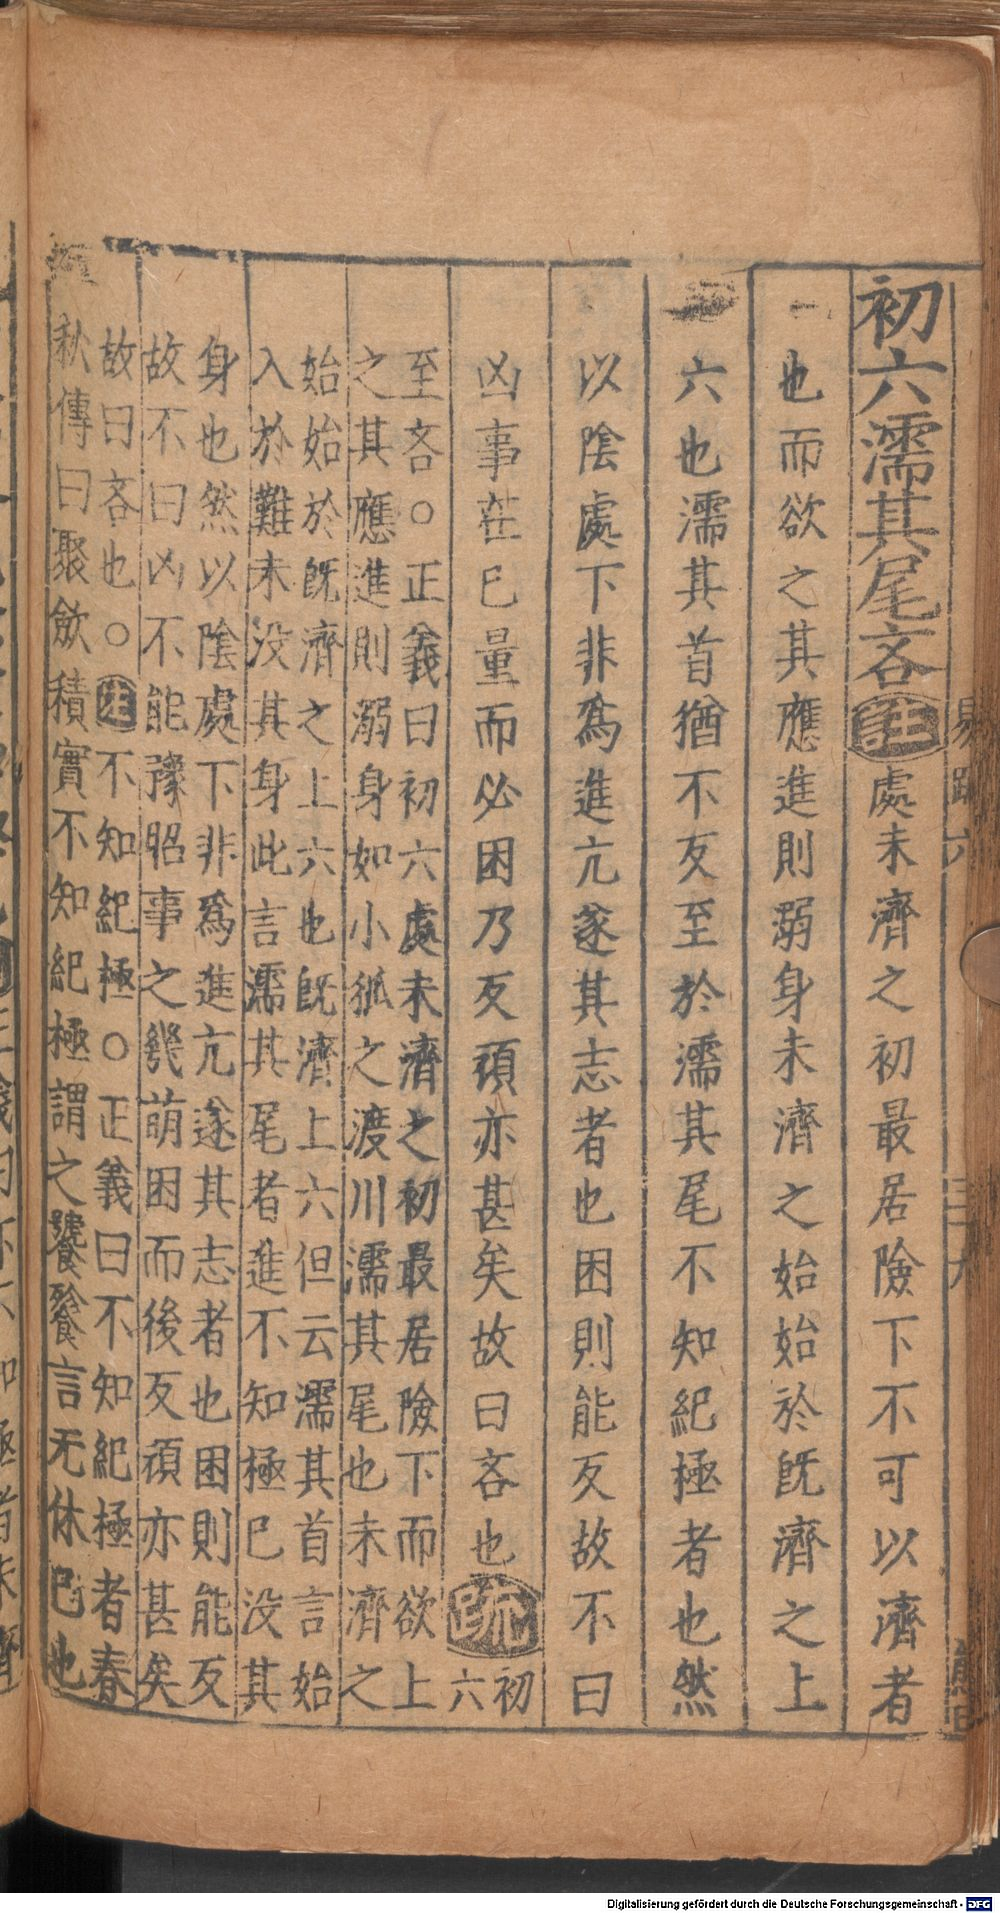 初六濡其尾吝註處未濟之初最居險下不可以濟者
也而欲之其應進則溺身未濟之始始於旣濟之上
六也濡其首猶不反至於濡其尾不知紀極者也然
以陰處下非爲進亢遂其志者也困則能反故不曰
凶事在已量而必困乃反頑亦甚矣故曰吝也疏初
六
至吝○正義曰初六處未濟之初最居險下而欲上
之其應進則溺身如小狐之渡川濡其尾也未濟之
始始於旣濟之上六也旣濟上六但云濡其首言始
入於難未没其身此言濡其尾者進不知極已没其
身也然以陰處下非爲進亢遂其志者也困則能反
故不曰凶不能豫昭事之幾萌困而後反頑亦甚矣
故曰吝也○註不知紀極○正義曰不知紀極者春
秋傳曰聚歛積實不知紀極謂之饕餮言无休已也
易 六
Digitalisierung gefördert durch die Deutsche Forschungsgemeinschaft - DFG